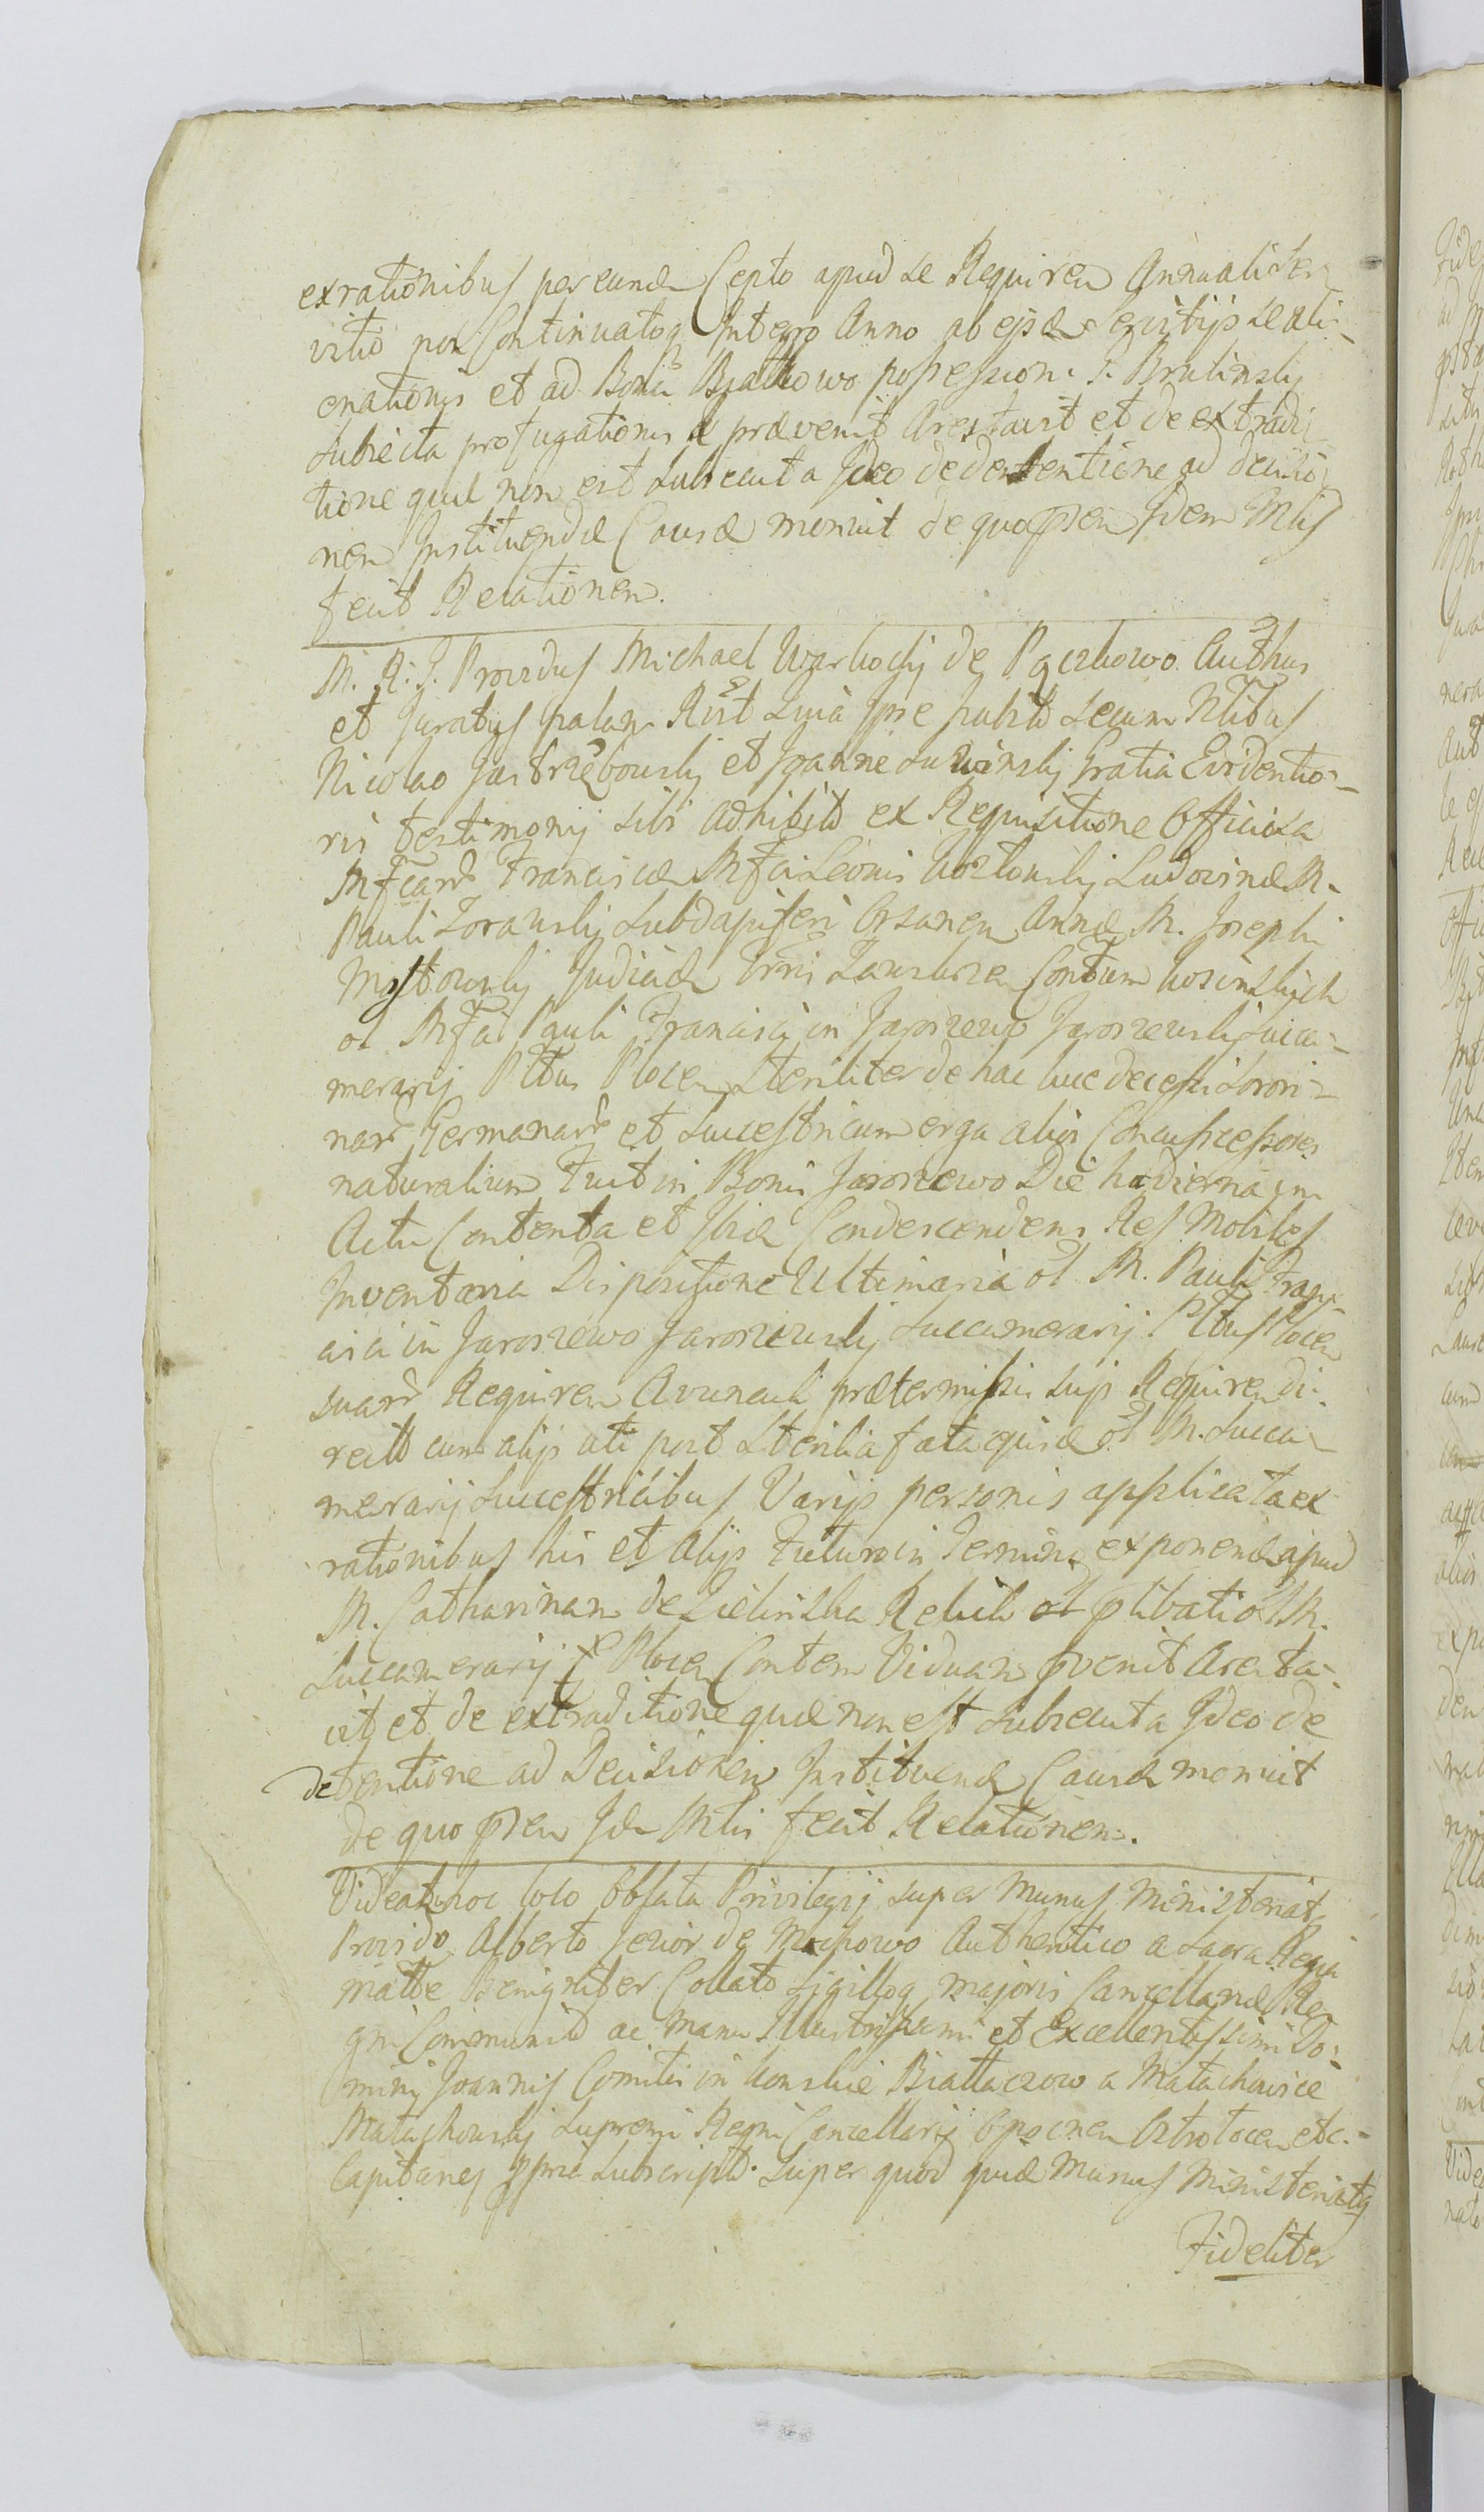 ex rationibus per eundē Cepto apud se Requiren Annuali Ser
vitio non Continuatoq Integro Anno ab ejsdē Servitijs se ali-
enationis et ad Bona Białkowo possession. F. Brulinskij
Subiecta profugationis prævenit Arestavit et de extradi-
tione quæ non est subsecuta Ideo de detentione ad decisio-
nem Instituendæ Causæ monuit de quo pren Idem Mlis
fecit Relationem.
M. R. J. Providus Michael Warhochij de Pączkowo Authus
et Juratus palam Reit Quia Ipse habito secum Nlibus
Nicolao Jastrzębowskij et Joanne Suzinskij Gratia Evidentio-
ris testimonij sibi adhibito ex Requisitione Officiosa
Mfcarū Franciscæ Mfci Leonis Kozłowskij Ludovinæ M.
Pauli Zorawskij Subdapiferi Orsanen Annæ M. Josephi
Mystowskij Judicidæ Trrī Zawskrzen Contum Kosinskich
ol Mfci Pauli Francisci in Jaroszewo Jaroszewskij Succa-
merarij Pltus Plocen Steriliter de hac luce decessi Sorori-
narū Germanarū et Successtricum erga alios Consuccessores
naturalium Fuit in Bonis Jaroszewo Die hodierna in
Actu Contenta et Ibidē Condescendens Res Mobiles
Inventaria Dispositione Ultimaria ol M. Pauli Fran-
cisci in Jaroszewo Jaroszewskij Succamerarij Pltus Plocen
suarū Requiren Avunculi prætermissis sup Requiren di-
recto cum alijs uti post Sterilia fata ejusdē ol M. Succa-
merarij Successtricibus Varijs personis applicata ex
rationibus his et alijs Futuro in Termino exponendis apud
M. Catharinam de Zielinskie Relict ol plibatio M.
Succamerarij Plocen Contem Viduam pvenit Aresta-
vit et de extraditione quæ non est subsecuta Ideo de
detentione ad Decisionem Instituendæ Causæ monuit
de quo pren Idē Mlis fecit Relationem.
Videat hoc loco Oblata Privilegij super Munus Ministeriat
Provido Alberto Jezior de Machowo Authentico a Sacra Regia
Matte Benigniter Collato Sigilloq majoris Cancellariæ Re
gni Communito ac Manu Illustrissimi et Excellentissimi Do-
mini Joannis Comitis in Konskie Białłaczow a Małachowice
Małachowskij Supremi Regni Cancellarij Opocnen Ostrołocen etc.
Capitanei pprie Subscripto. Super quod quidē Munus Ministeriatq
Fideliter